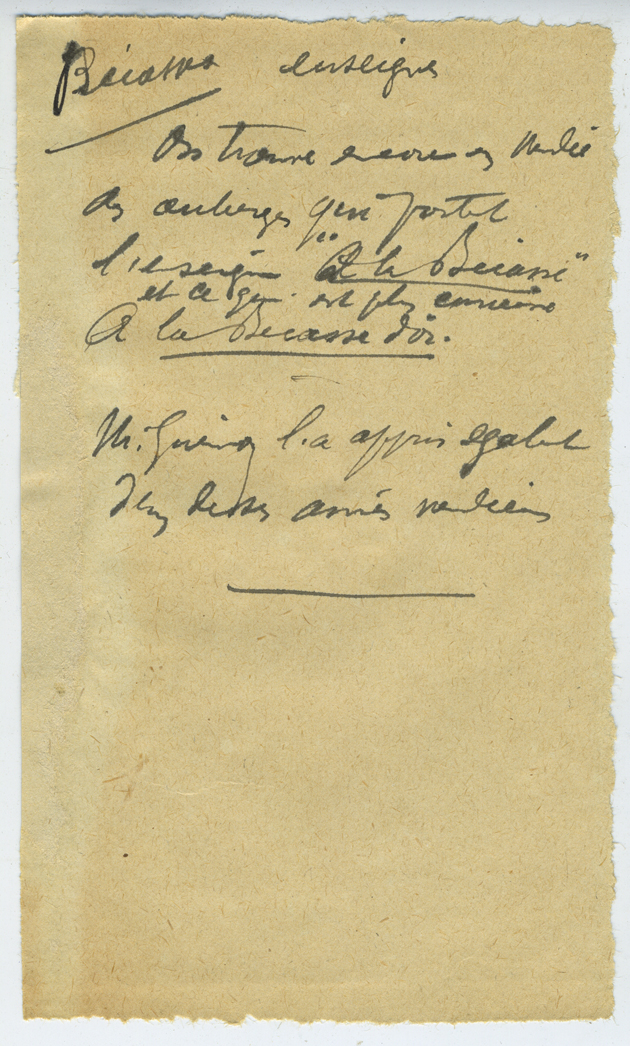 Bécasse enseigne
On trouve encore en Vendée
des auberges qui portent
l'enseigne "A la Bécasse"
et ce qui est plus curieux
A la Bécasse d'or.
M. l'a appris egalt